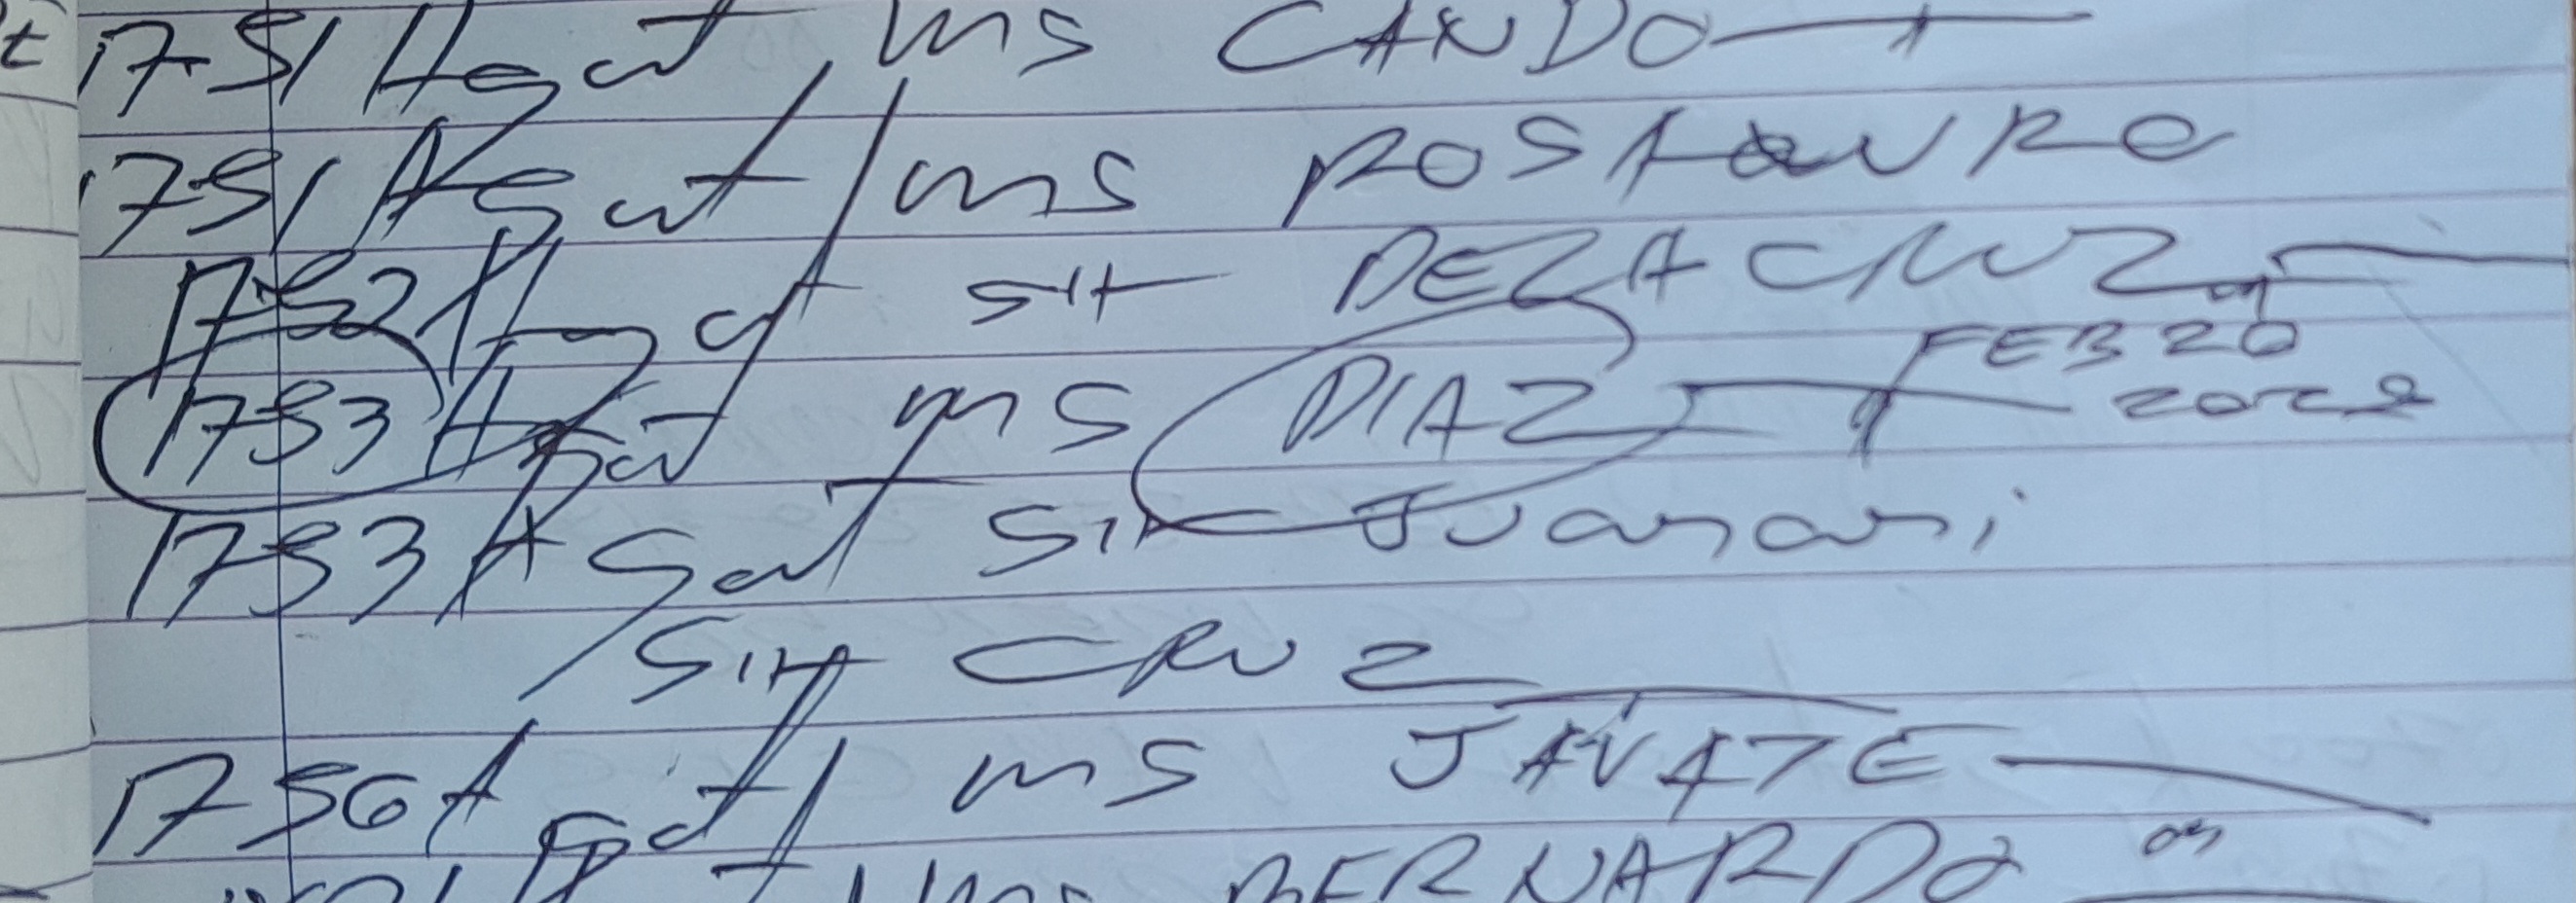 1751 Agat ms CANDO
1751 Agat ms ROSAURO
1752 Agat sir DELA CRUZ
FEB 20
1753 Agat ms DIAZ 2022
1753 Agat Sir Juanani
Sir CRUZ
1756 Agat ms JAVATE
ms BERNARDO